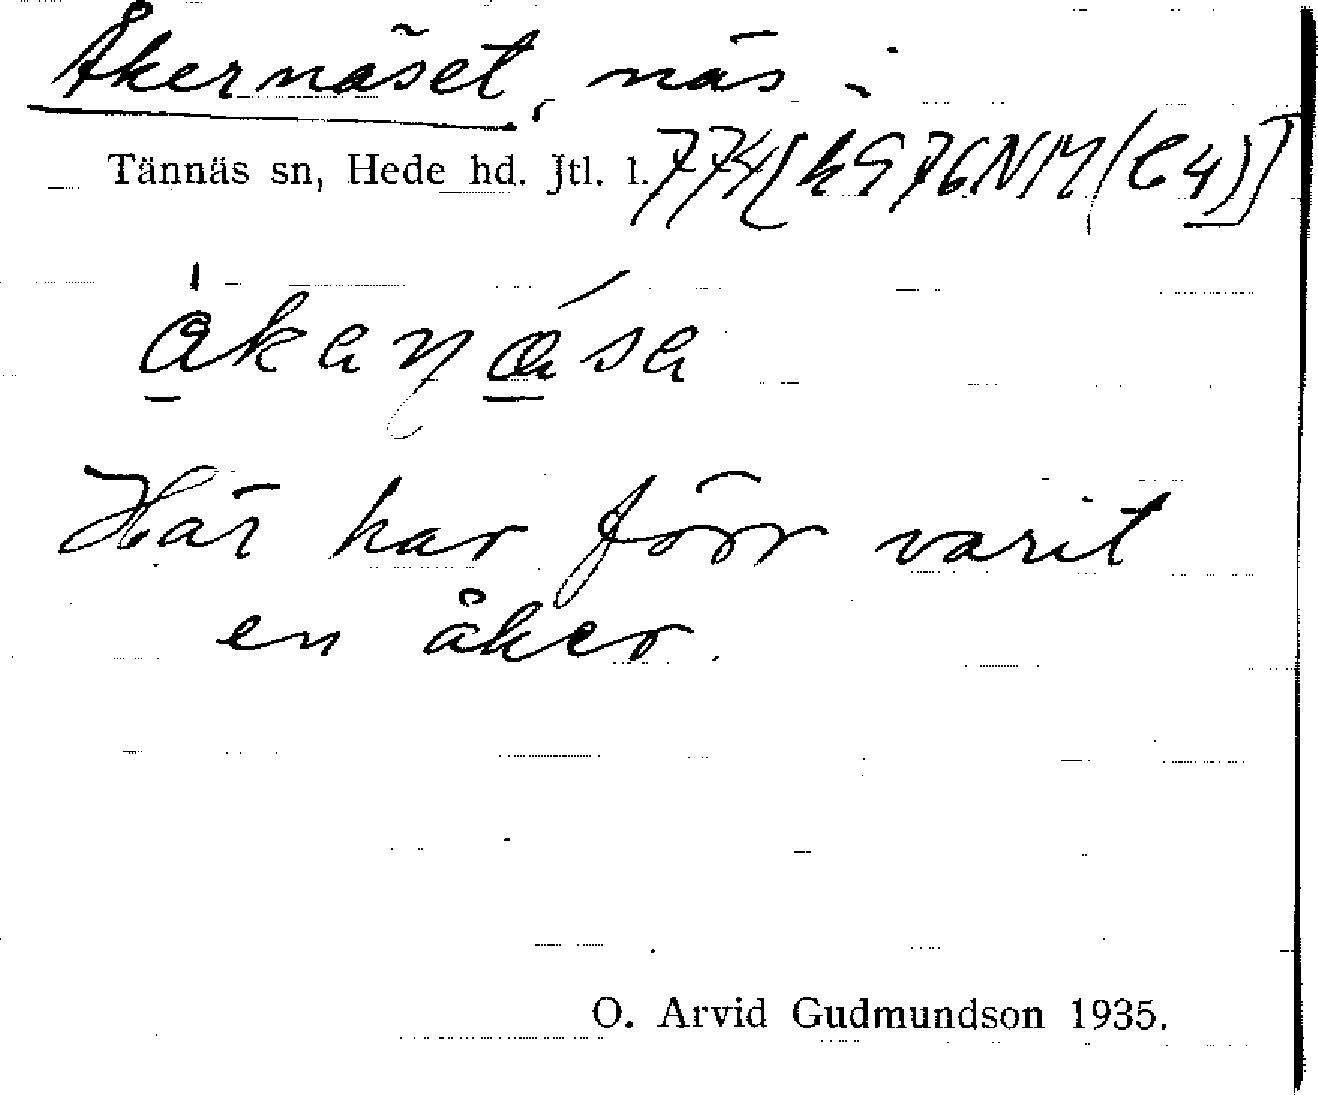 Åkernäset, näs i
Tännäs sn, Hede hd. Jtl. l. 774[h976NM(C4)]
Här har förr varit
en åker.
O. Arvid Gudmundson 1935.